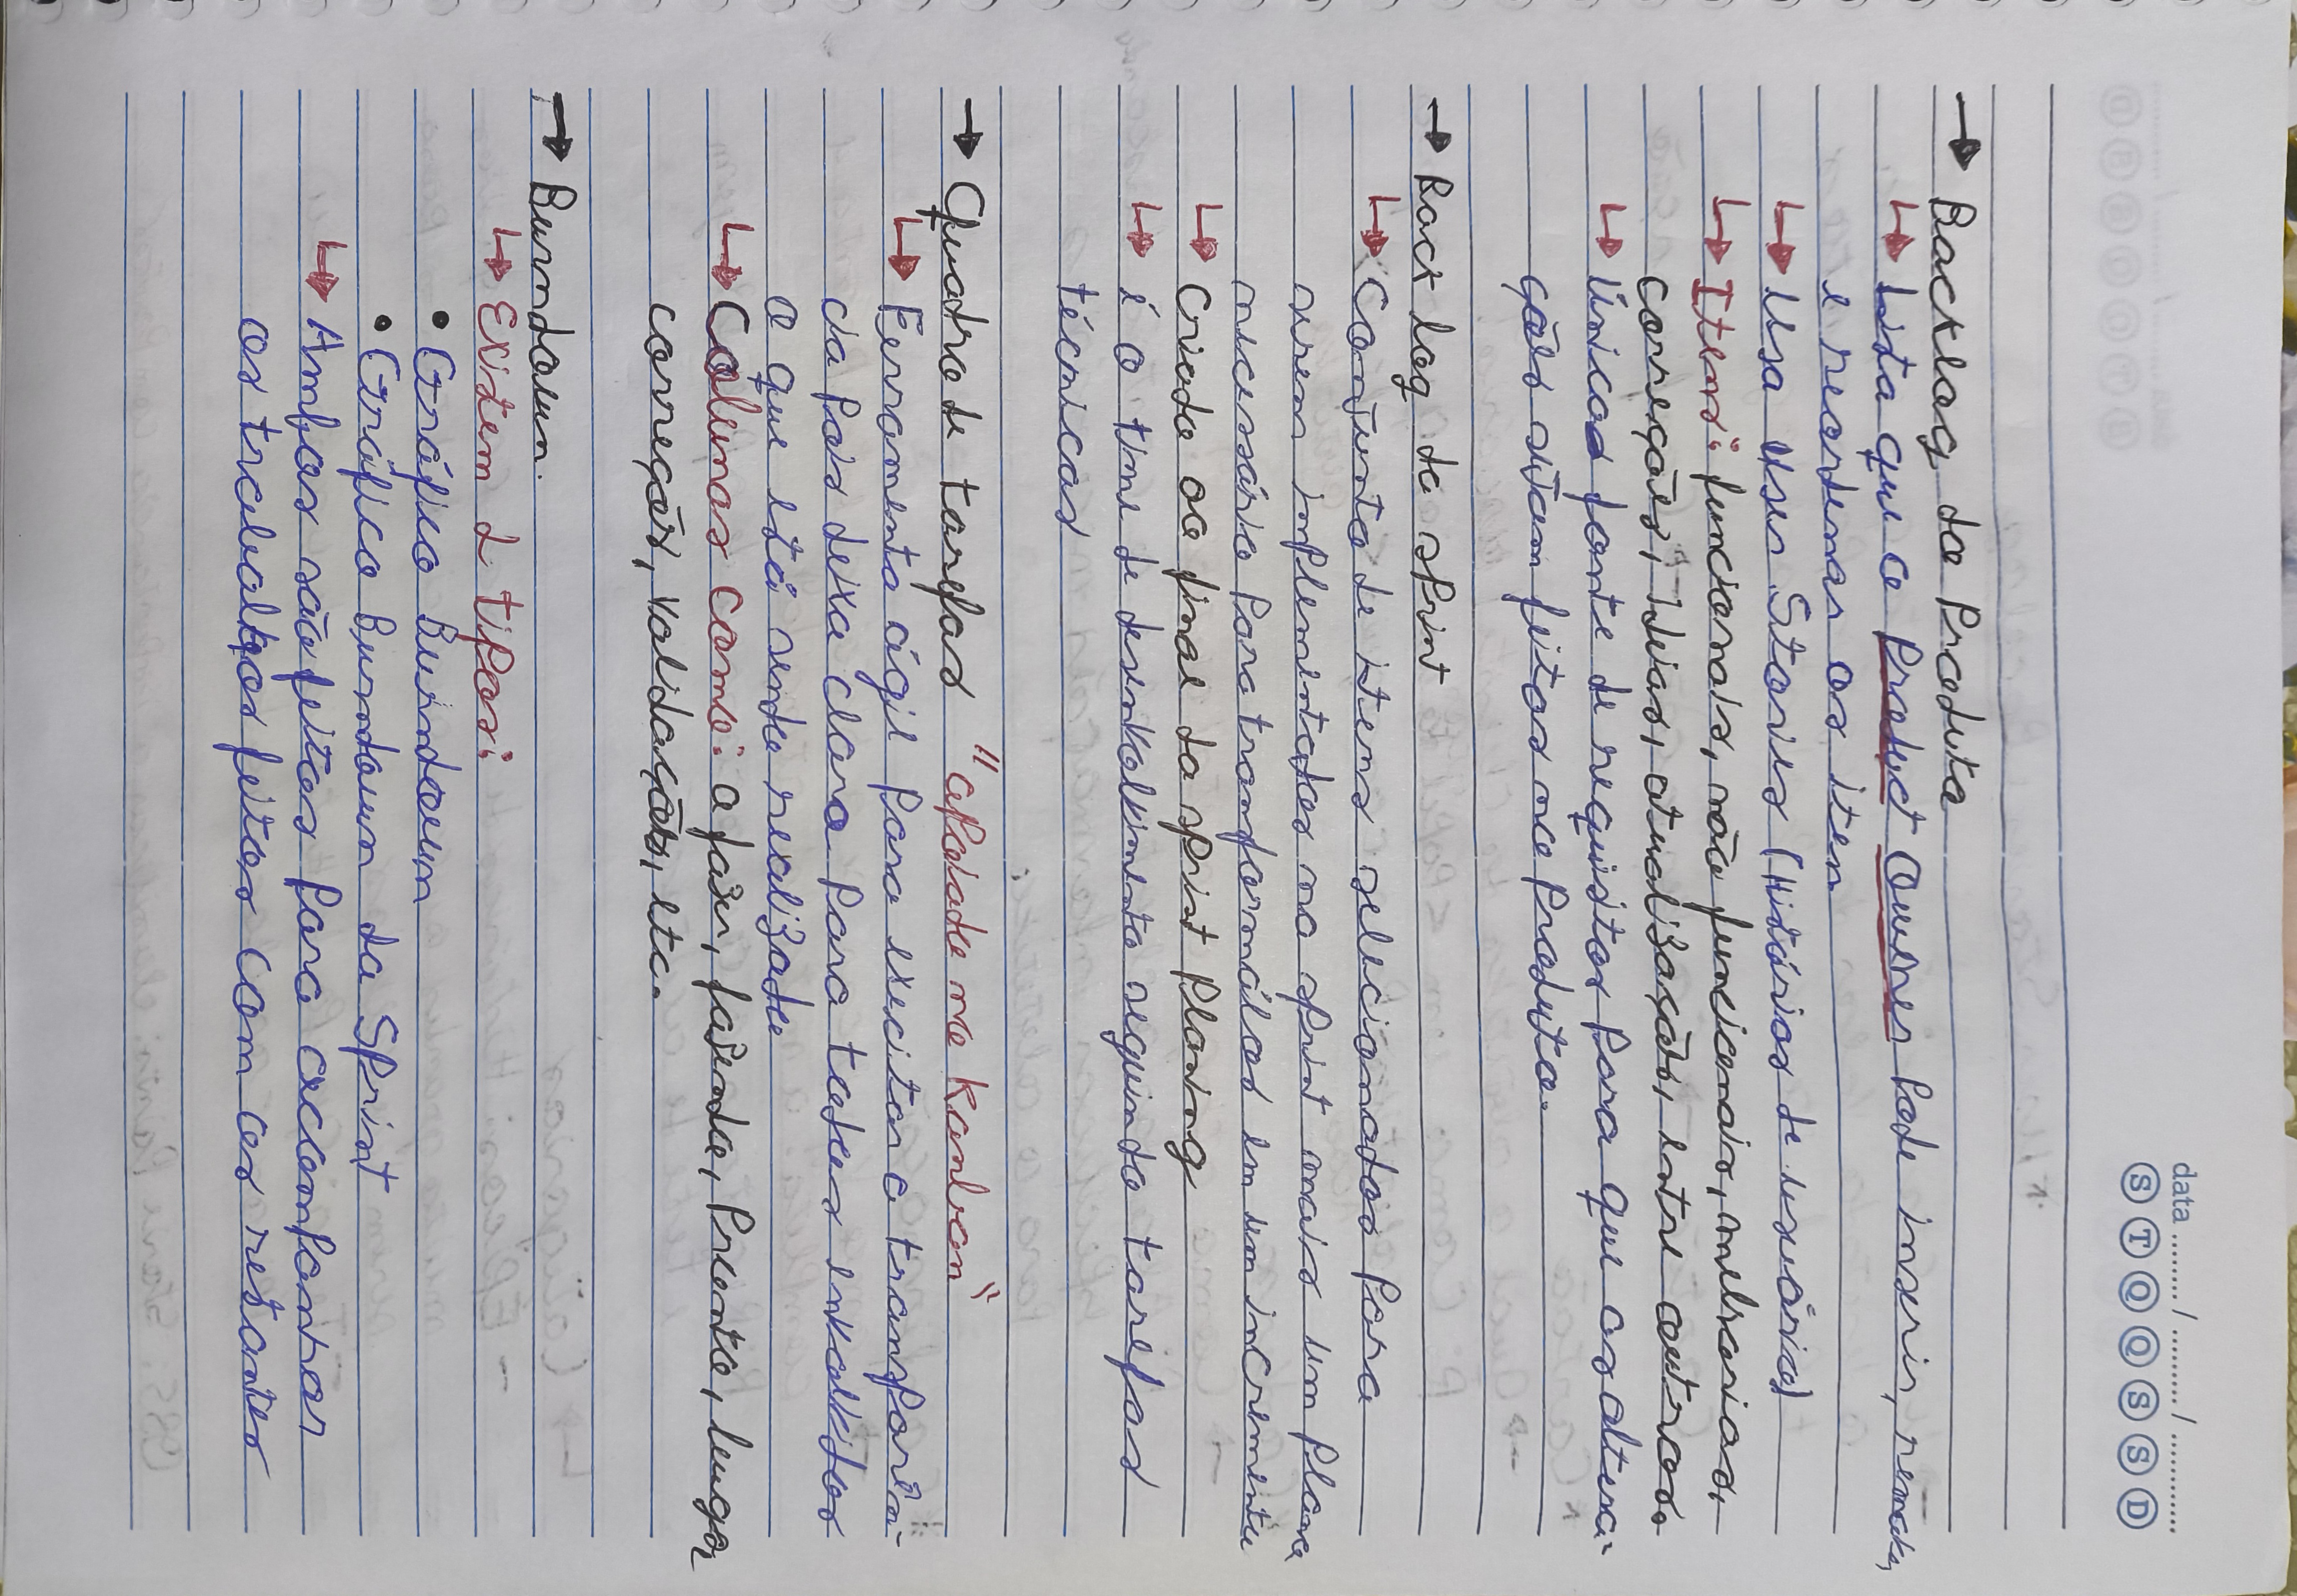 data ........ / ......... / ............
S T Q Q S S D
→ Backlog do Produto
↳ Lista que o Product Owner Pode inserir, remover,
e reordenar os iten
↳ Usa User Stories (Histórias de usuário)
↳ Itens: funcionais, não funcionais, melhorias,
correções, ideias, atualizações, entre outros.
↳ Única fonte de requisitos Para que as altera-
ções sejam feitas no Produto.
→ Back log da sprint
↳ Conjunto de itens selecionados Para
serem implementados na sprint mais um Plano
necessário Para transformálos em um incremento
↳ Criado ao final da sprint Planing
↳ é o time de desenvolvimento seguindo tarefas
técnicas
→ Quadro de tarefas "apoiado no Kanban"
↳ Ferramenta ágil Para exercitar a transparên-
cia Pois deixa claro Para todos envolvidos
o que está sendo realizado
↳ Colunas como: a fazer, fazendo, Pronto, bugs,
correções, validações, etc.
→ Burndown.
↳ Existem 2 tipos:
• Gráfico Burndown
• Gráfico Burndown da Sprint
↳ Ambos são feitos Para acompanhar
os trabalhos feitos com os restantes